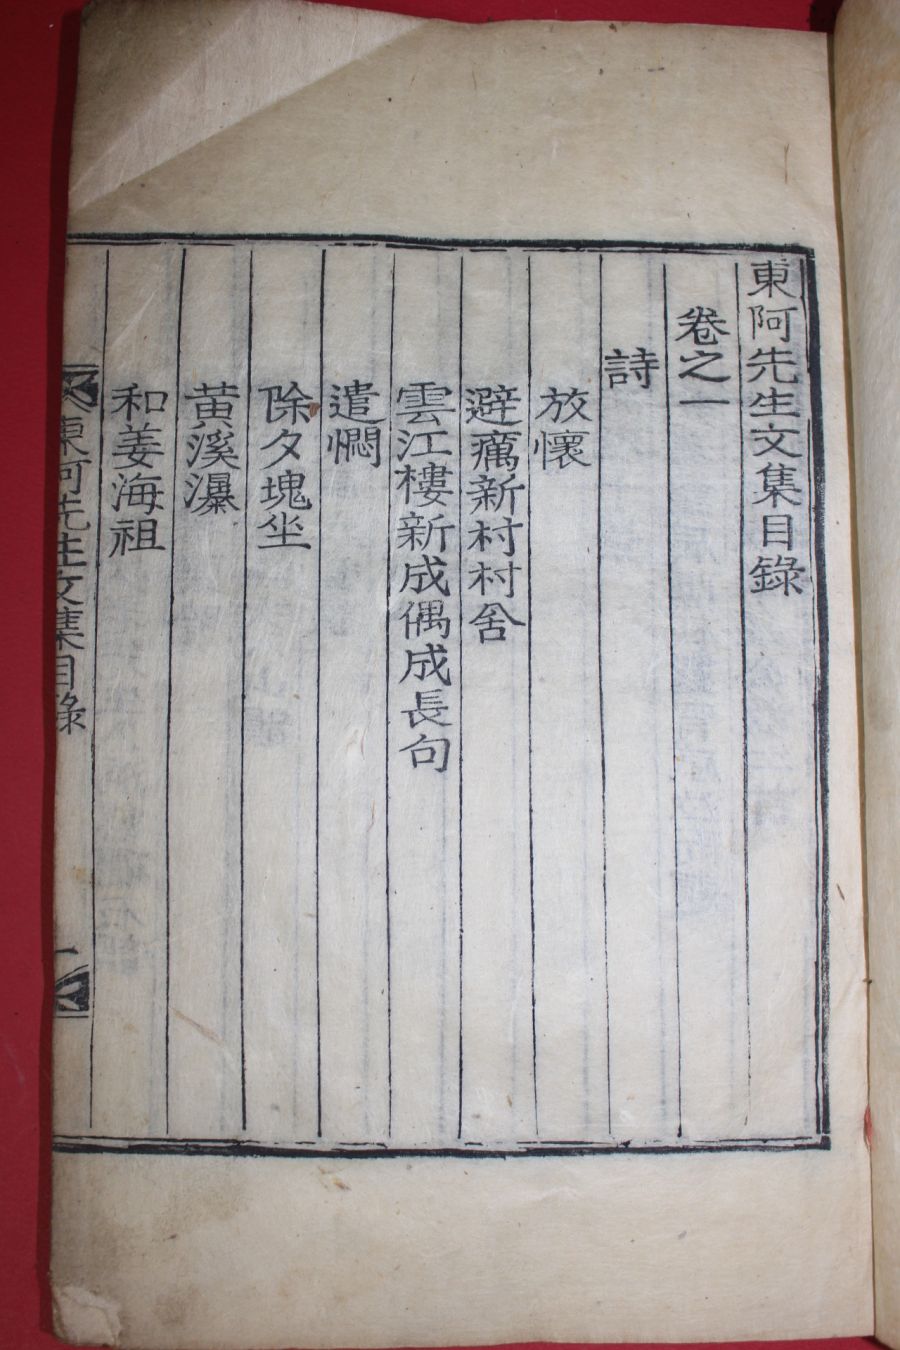 東阿先生文集目錄
卷之一
詩
放懷
避癘新村村舍
雲江樓新成偶成長句
遣悶
除夕塊坐
黃溪瀑
和姜海祖
東阿先生文集目錄 一